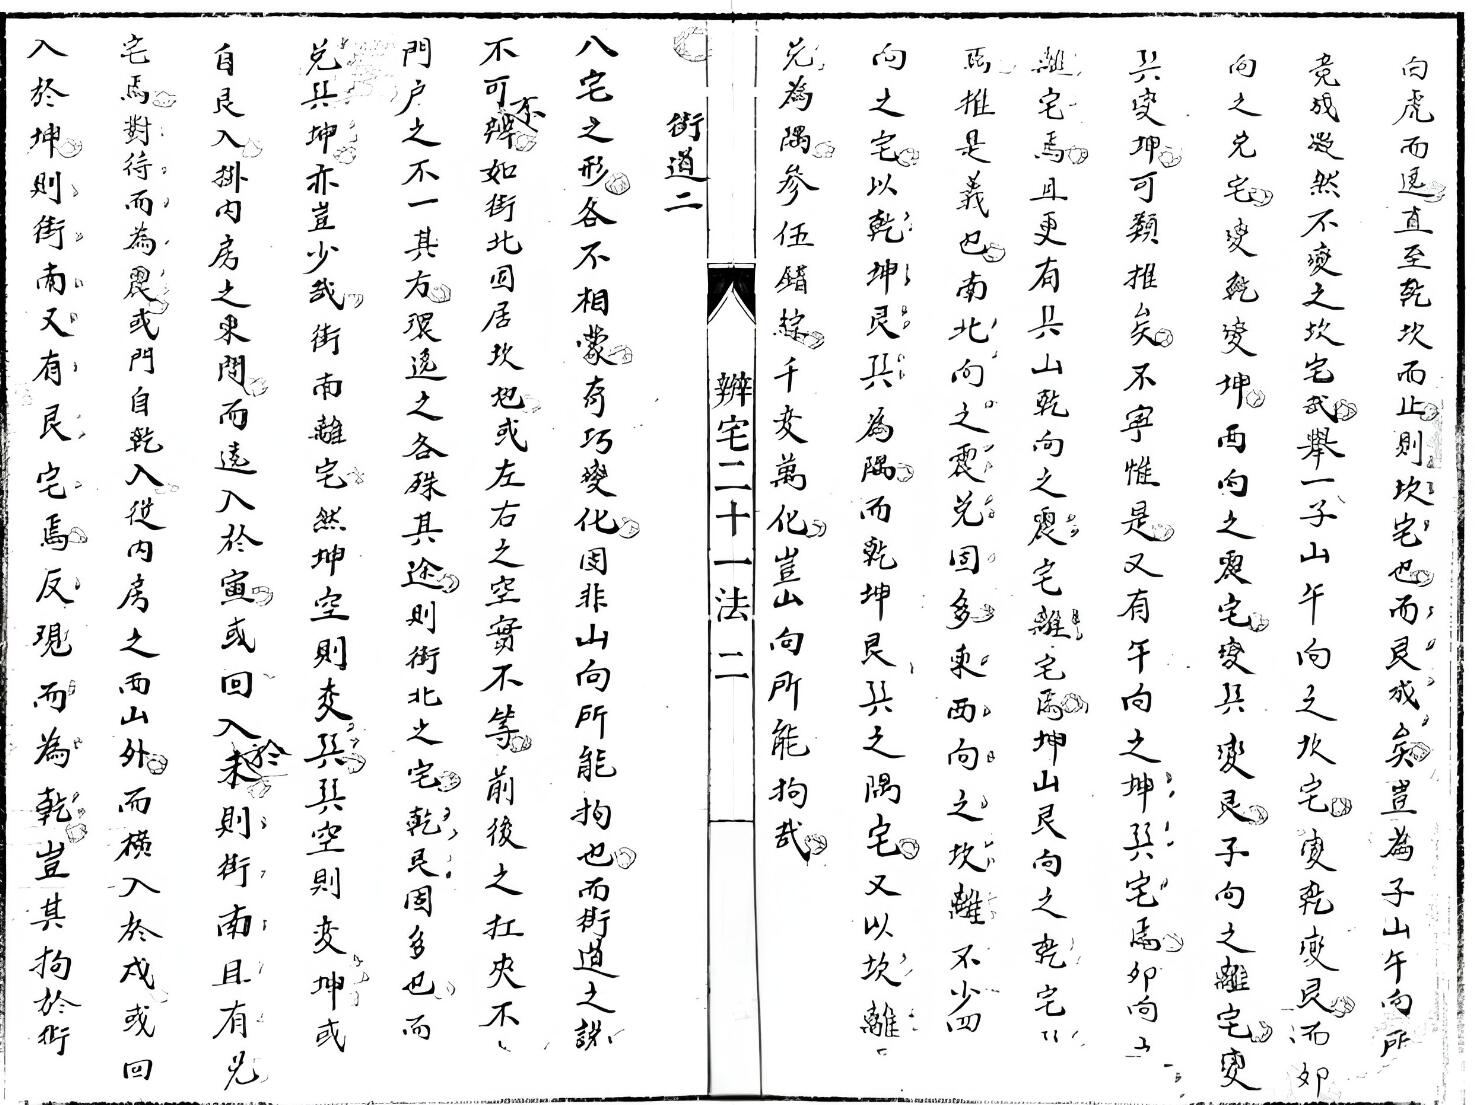 白虎而遶直至乾坎而止則坎宅也而艮成矣豈為子山午向所
竟成凝然不變之坎宅哉舉一子山午向之坎宅變乾變艮而卯
向之兌宅變乾變坤西向之震宅變巽變艮子向之離宅變
巽變坤可類推矣不寧惟是又有午向之坤巽宅焉卯向
離宅焉且更有巽山乾向之震宅離宅焉坤山艮向之乾宅
焉推是義也南北向之震兌固多東西向之坎離不少四
向之宅以乾坤艮巽為隅而乾坤艮巽之隅宅又以坎離
兌為隅參伍錯綜千变萬化豈山向所能拘哉
辨宅二十一法 二
街道二
八宅之形各不相蒙奇巧變化固非山向所能拘也而街道之說
不可不辨如街北固居坎地或左右之空實不等前後之扛夾不
門户之不一其方環遶之各殊其途則街北之宅乾艮固多也而
兌巽坤亦豈少哉街南離宅然坤空則变巽巽空則变坤或
自艮入掛内房之東間而遶入於寅或回入於未則街南且有兌
宅焉對待而為震或門自乾入從内房之西山外而橫入於戌或回
入於坤則街南又有艮宅焉反現而為乾豈其拘於街